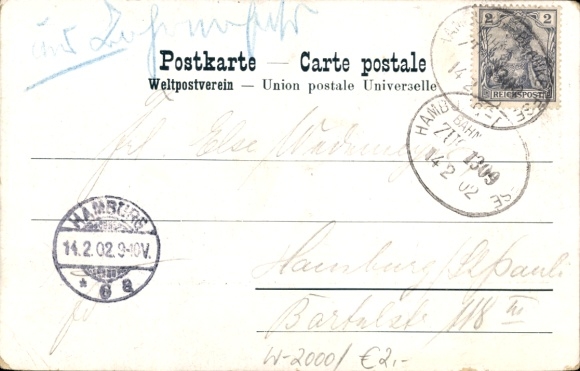 und
Postkarte — Carte postale
Weltpostverein — Union postale Universelle
2 2
REICHSPOST
HAMB BAHN
ZUG 1309
14 2 02
Frl. Else
HAMBURG
14.2.02.9-10V.
* 6 a
Hamburg/St. Pauli
Bartelsstr 118 III
W-2000/ €2,-